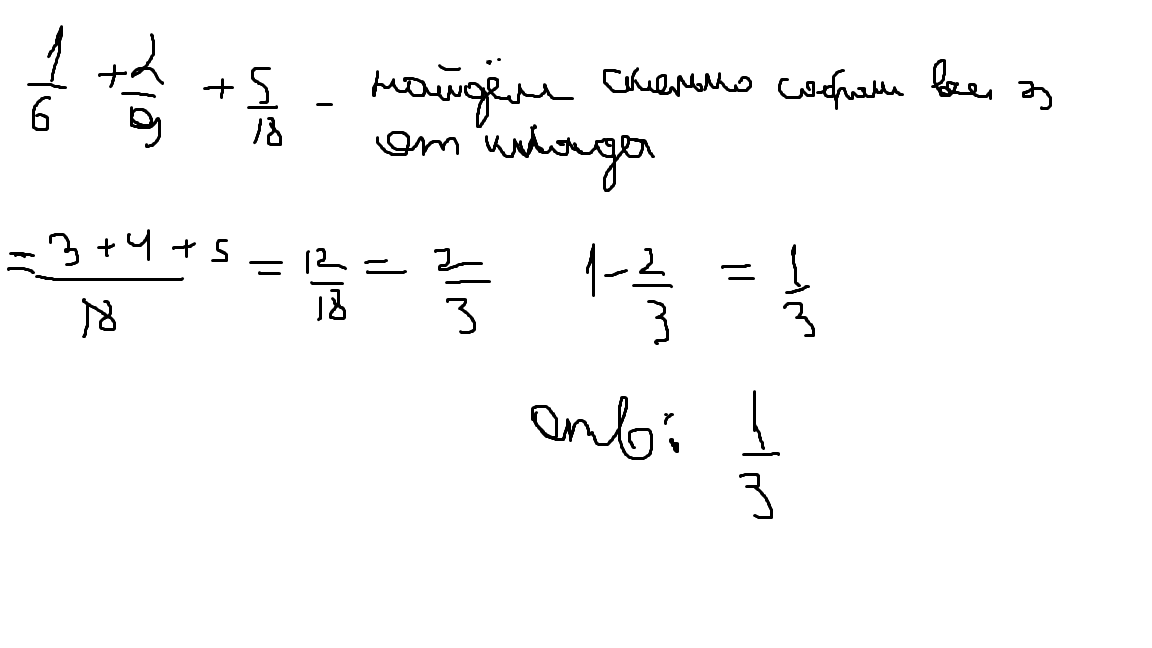 1/6 + 2/9 + 5/18 - найдём сколько собрали все 3
от клада
= 3 + 4 + 5 / 18 = 12/18 = 2/3 1 - 2/3 = 1/3
отв: 1/3